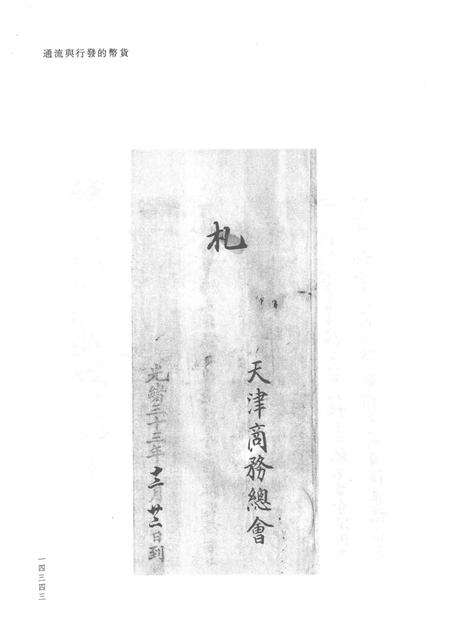 貨幣的發行與流通
札
天津商務總會
光緒三十三年十二月廿二日到
一四三四三